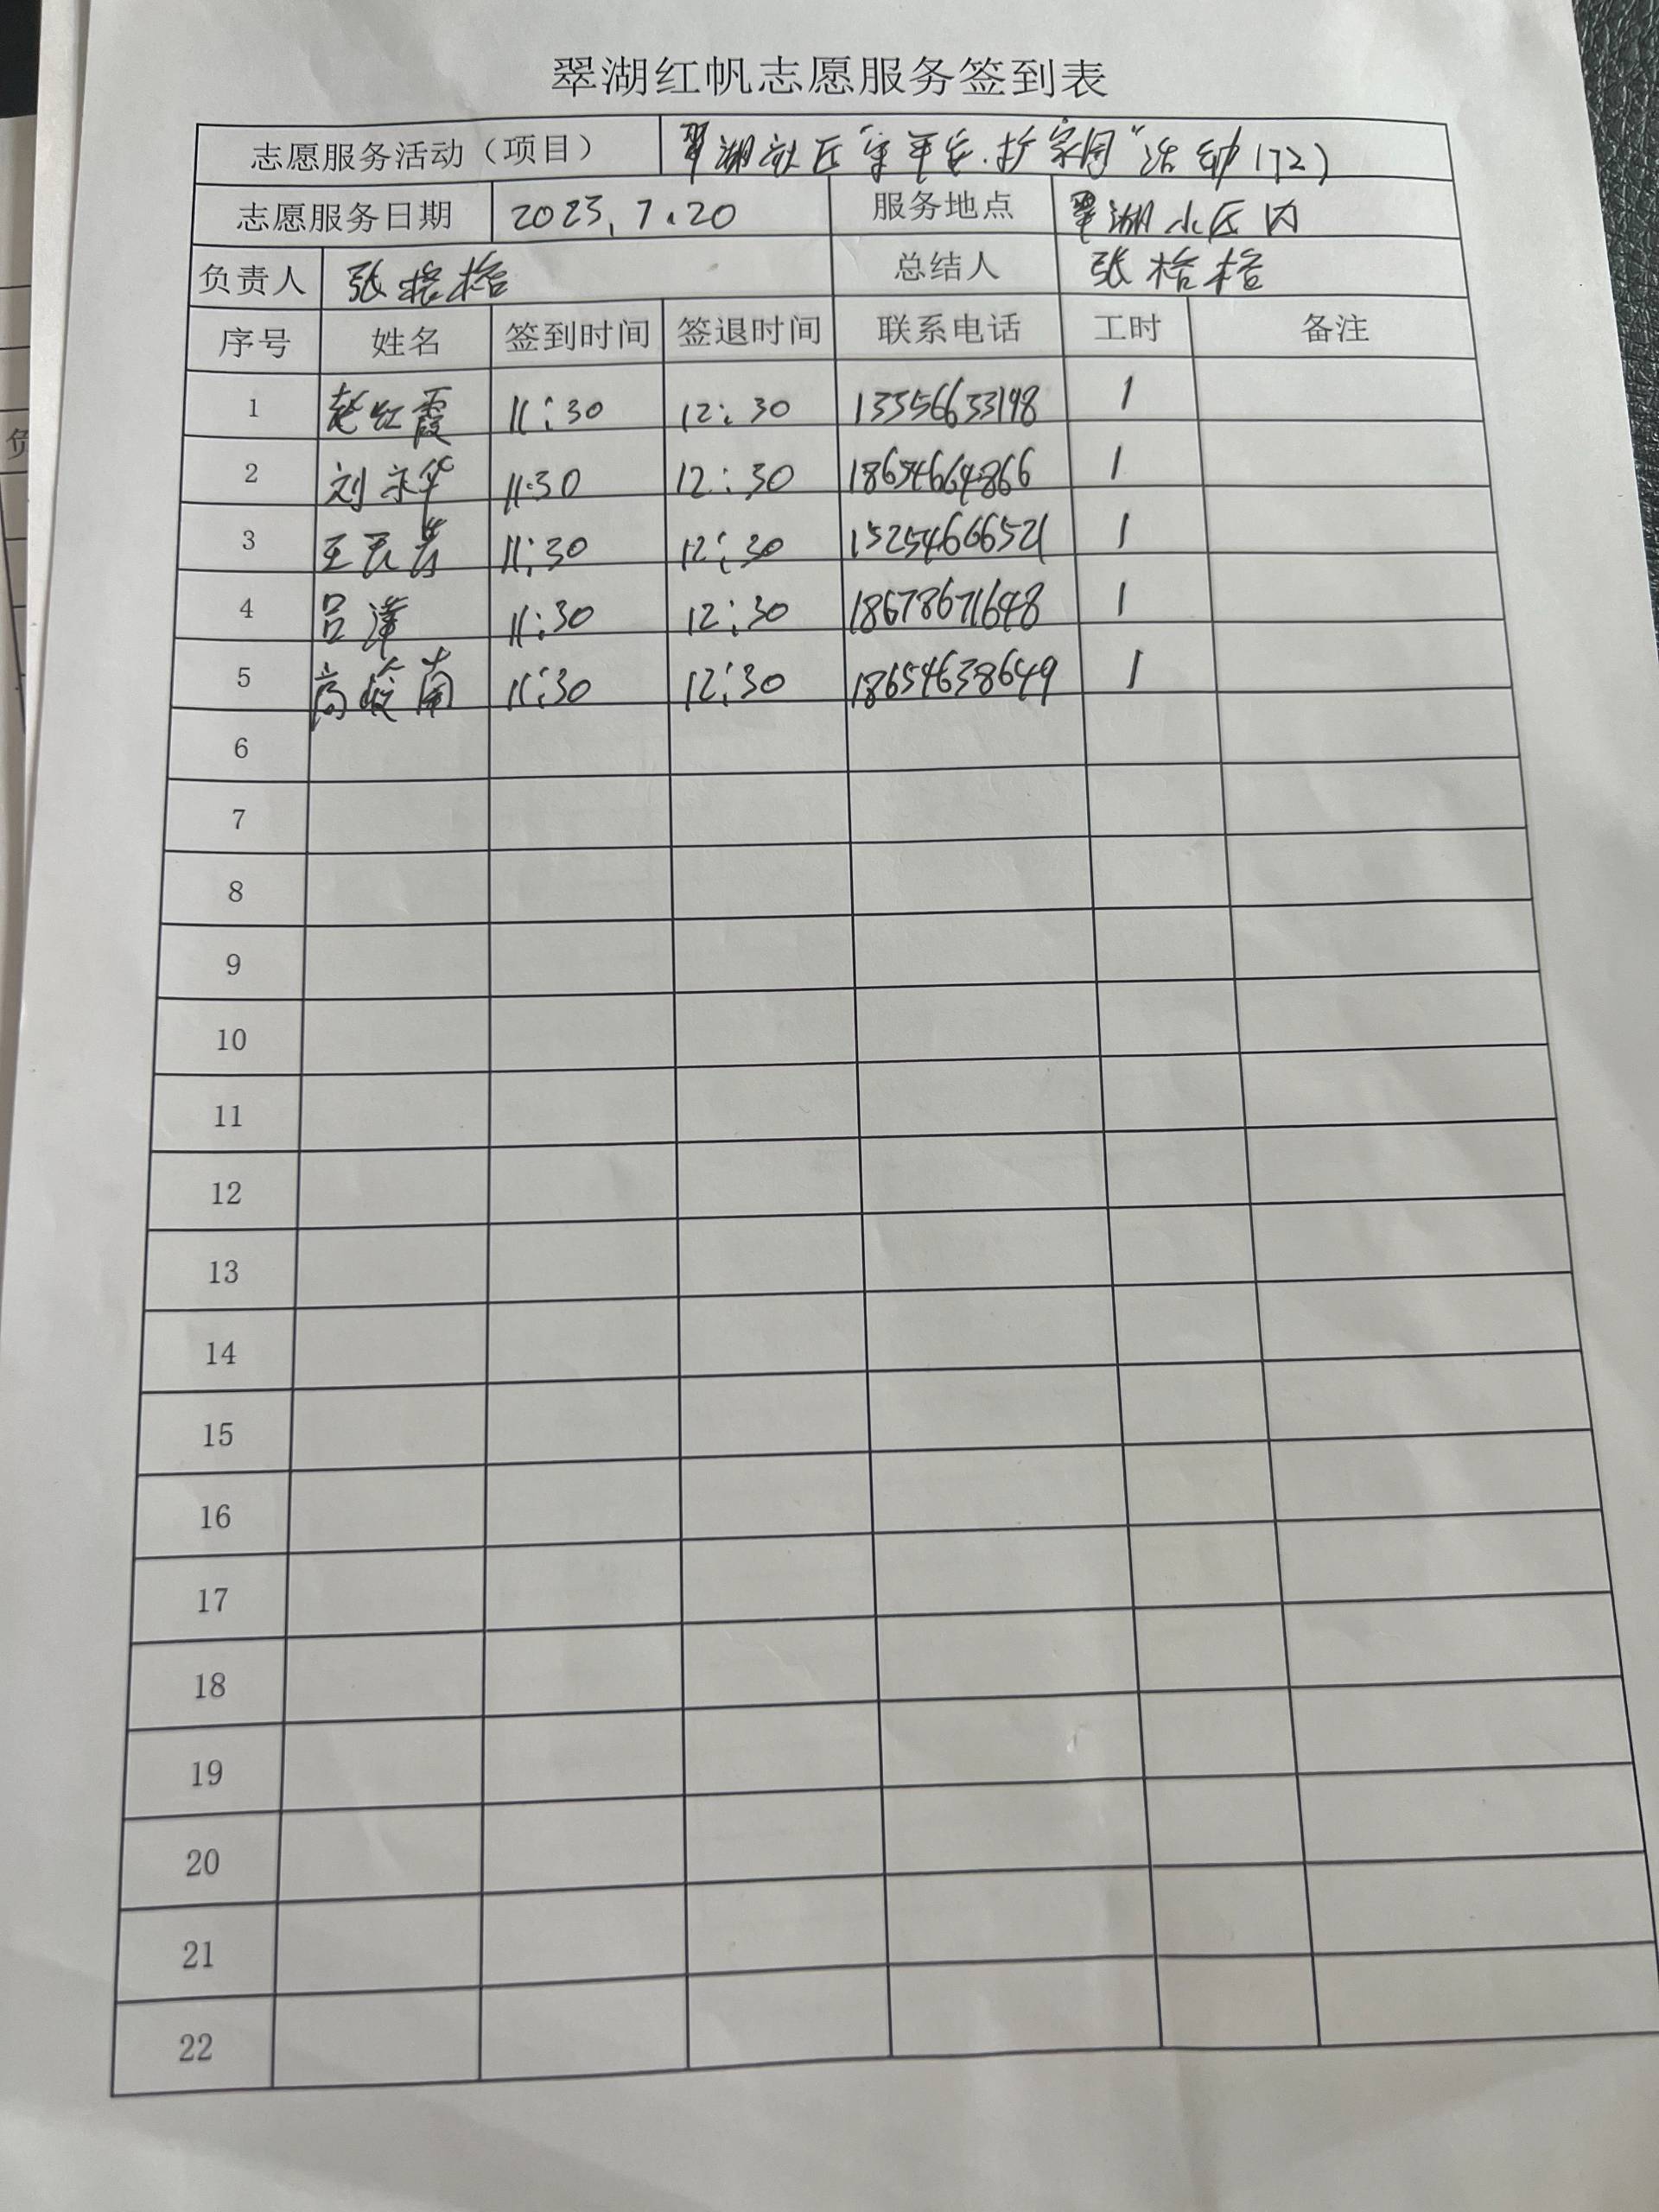 翠湖红帆志愿服务签到表
志愿服务活动（项目） 翠湖社区“守平安.护家园”活动(72)
志愿服务日期 2023.7.20 服务地点 翠湖小区内
负责人 张格格 总结人 张格格
序号 姓名 签到时间 签退时间 联系电话 工时 备注
1 赵红霞 11:30 12:30 13356633198 1
2 刘 11:30 12:30 18654664866 1
3 王 11:30 12:30 15254666521 1
4 吕 11:30 12:30 18678671648 1
5 高 11:30 12:30 18654638649 1
6
7
8
9
10
11
12
13
14
15
16
17
18
19
20
21
22